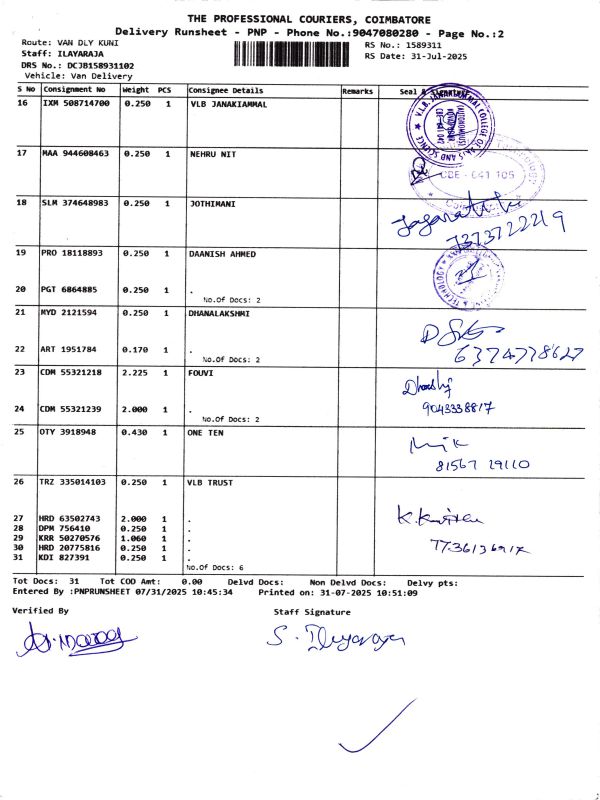 THE PROFESSIONAL COURIERS, COIMBATORE
Delivery Runsheet - PNP - Phone No.:9047080280 - Page No.:2
Route: VAN DLY KUNI
Staff: ILAYARAJA
DRS No.: DCJB158931102
Vehicle: Van Delivery
RS No.: 1589311
RS Date: 31-Jul-2025
S No Consignment No Weight PCS Consignee Details Remarks Seal & Signature
16 IXM 508714700 0.250 1 VLB JANAKIAMMAL
17 MAA 944608463 0.250 1 NEHRU NIT
CBE - 641 105
18 SLM 374648983 0.250 1 JOTHIMANI
7373722219
19 PRO 18118893 0.250 1 DAANISH AHMED
20 PGT 6864885 0.250 1 .
No.Of Docs: 2
21 MYD 2121594 0.250 1 DHANALAKSHMI
22 ART 1951784 0.170 1 .
6374778627
No.Of Docs: 2
23 CDM 55321218 2.225 1 FOUVI
24 CDM 55321239 2.000 1 .
9043338817
No.Of Docs: 2
25 OTY 3918948 0.430 1 ONE TEN
81567 29110
26 TRZ 335014103 0.250 1 VLB TRUST
27 HRD 63502743 2.000 1 .
28 DPM 756410 0.250 1 .
29 KRR 50270576 1.060 1 .
30 HRD 20775816 0.250 1 .
31 KDI 827391 0.250 1 .
No.Of Docs: 6
Tot Docs: 31 Tot COD Amt: 0.00 Delvd Docs: Non Delvd Docs: Delvy pts:
Entered By :PNPRUNSHEET 07/31/2025 10:45:34 Printed on: 31-07-2025 10:51:09
Verified By
Staff Signature